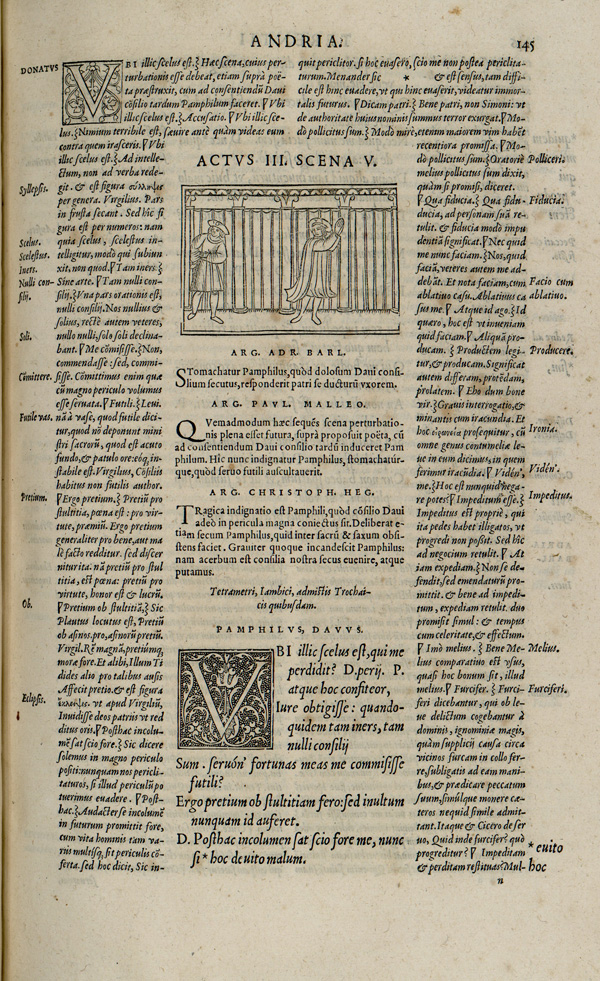 ANDRIA.
145
DONATVS
VBI illic scelus est.} Hæc scena, cuius per-
turbationis esse debeat, etiam suprà poë-
ta præstruxit, cum ad consentiendū Daui
cōsilio tardum Pamphilum faceret. Vbi
illic scelus est.} Accusatio. Vbi illic sce-
lus.} Nimium terribile est, sæuire antè quàm videas eum
contra quem irasceris. Vbi
illic scelus est.} Ad intelle-
ctum, non ad verba rede-
Syllepsis.
git. & est figura
per genera. Virgilius. Pars
in frusta secant. Sed hîc si
gura est per numeros: nam
Scelus.
quia scelus, scelestus in-
Scelestus.
telligitur, modò qui subiun
Iners.
xit, non quod. Tam iners.}
Nulli con-
Sine arte. Tam nulli con-
silij.
silij.} Vna pars orationis est,
nulli consilij. Nos nullius &
solius, rectè autem veteres,
Soli.
nullo nulli, solo soli declina-
bant. Me cōmisisse.} Non,
commendasse: sed, commi-
Cōmittere.
sisse. Cōmittimus enim quæ
cū magno periculo volumus
esse seruata. Futili.} Leui.
Futile vas.
nā à vase, quod futile dici-
tur, quod nō deponunt mini
stri sacrorū, quod est acuto
fundo, & patulo ore: eóq, in-
stabile est. Virgilius, Cōsiliis
habitus non futilis author.
Pretium.
Ergo pretium.} Pretiū pro
stultitia, pœna est: pro vir-
tute, præmiū. Ergo pretium
generaliter pro bene, aut ma
lè facto redditur. sed discer
nitur ita: nā pretiū pro stul
titia, est pœna: pretiū pro
virtute, honor est & lucrū.
Ob.
Pretium ob stultitiā.} Sic
Plautus locutus est, Pretiū
ob asinos. pro, asinorū pretiū.
Virgil. Rē magnā, pretiūmq;
mora fore. Et alibi, Illum Ti
dides alio pro talibus ausis
Affecit pretio. & est figura
Eclipsis.
vt apud Virgiliū,
Inuidisse deos patriis vt red
ditus oris. Posthac incolu-
mē sat scio fore.} Sic dicere
solemus in magno periculo
positi: nunquam nos pericli-
taturos, si illud periculū po
tuerimus euadere. Post-
hac.} Audacter se incolumē
in futurum promittit fore,
cum vita hominis tam va-
riis multisq, sit periculis cō-
serta. sed hoc dicit, Sic in-
quit periclitor. si hoc euasero, scio me non postea periclita-
turum. Menander sic * & est sensus, tam diffi-
cile est hinc euadere, vt qui hinc euaserit, videatur immor-
talis futurus. Dicam patri.} Bene patri, non Simoni: vt
de authoritate huius nominis summus terror exurgat. Mo-
dò pollicitus sum.} Modò mirè, etenim maiorem vim habēt
recentiora promissa. Mo-
dò pollicitus sum.} Oratoriè
Polliceri.
melius pollicitus sum dixit,
quàm si promisi, diceret.
Qua fiducia.} Qua fidu-
Fiducia.
ducia, ad personam suā re-
tulit. & fiducia modò impu
dentiā significat. Nec quid
me nunc faciam.} Nos, quid
faciā, veteres autem me ad-
debāt. Et nota faciam, cum
Facio cum
ablatiuo casu. Ablatinus ca
ablatiuo.
sus me. Atque id ago.} Id
quæro, hoc est vt inueniam
quid faciam. Aliquā pro-
ducam.} Productem legi-
Producere.
tur, & producam. Significat
autem differam, protēdam,
prolatem. Eho dum bone
vir.} Grauis interrogatio, &
minantis cum iracundia. Et
Ironia.
hoc prosequitur, cū
omne genus contumeliæ le-
ue in eum dicimus, in quem
ferimur iracūdia. Vidén',
Vidén'.
me.} Hoc est nunquid nega-
re potes? Impeditum esse.}
Impeditus.
Impeditus est propriè, qui
ita pedes habet illigatos, vt
progredi non possit. Sed hîc
ad negocium retulit. At
iam expediam.} Non se de-
fendit, sed emendaturū pro-
mittit. & bene ad impedi-
tum, expediam retulit. duo
promisit simul: & tempus
cum celeritate, & effectum.
Imò melius.} Bene Me-
Melius.
lius comparatiuo est vsus,
quasi hoc bonum sit, illud
melius. Furcifer.} Furci-
Furciferi.
feri dicebantur, qui ob le-
ue delictum cogebantur à
dominis, ignominiæ magis,
quàm supplicij causa circa
vicinos furcam in collo fer-
re, subligatis ad eam mani-
bus, & prædicare peccatum
suum, simúlque monere cæ-
teros nequid simile admit-
tant. Itaque & Cicero de ser
uo, Quid inde furcifer? quò
progreditur? Impeditam
& perditam restituas? Mul-
* euito
hoc
n
ACTVS III. SCENA V.
ARG. ADR. BARL.
Stomachatur Pamphilus, quòd dolosum Daui consi-
lium secutus, responderit patri se ducturū vxorem.
ARG. PAVL. MALLEO.
Quemadmodum hæc sequēs scena perturbatio-
nis plena esset futura, suprà proposuit poëta, cū
ad consentiendum Daui consilio tardū induceret Pam
philum. Hîc nunc indignatur Pamphilus, stomachatúr-
que, quòd seruo futili auscultauerit.
ARG. CHRISTOPH. HEG.
Tragica indignatio est Pamphili, quòd cōsilio Daui
adeò in pericula magna coniectus sit. Deliberat e-
tiam secum Pamphilus, quid inter sacrū & saxum obsi-
stens faciet. Grauiter quoque incandescit Pamphilus:
nam acerbum est consilia nostra secus euenire, atque
putamus.
Tetrametri, Iambici, admistis Trochai-
cis quibusdam.
PAMPHILVS, DAVVS.
VBI illic scelus est, qui me
perdidit? D. perij. P.
atque hoc confiteor,
Iure obtigisse: quando-
quidem tam iners, tam
nulli consilij
Sum. seruón' fortunas meas me commisisse
futili?
Ergo pretium ob stultitiam fero: sed inultum
nunquam id auferet.
D. Posthac incolumen sat scio fore me, nunc
si * hoc deuito malum.